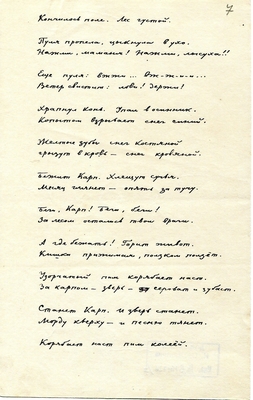 7
Кончилось поле. Лес густой.
Пуля пропела, цыкнула в ухо.
Нажми, мамаша! Нажми, лысуха!!
Еще пуля: вжжи... Вж-ж-и-и...
Ветер свистит: лови! держи!
Храпнул конь. Упал в осинник.
Копытом взрывает снег синий.
Желтые зубы снег костяной
грызут в крови — снег кровяной.
Бежит Карп. Хлящут сучья.
Месяц глянет — опять за тучу.
Беги, Карп! Беги, беги!
За лесом остались твои враги.
А где бежать! Горит живот.
Кишки прижимая, ползком ползёт.
Узорчатый пим корябает наст.
За Карпом — зверь — сероват и зубаст.
Станет Карп. И зверь станет.
Морду кверху — и песню тянет.
Корябает наст пим колеёй.